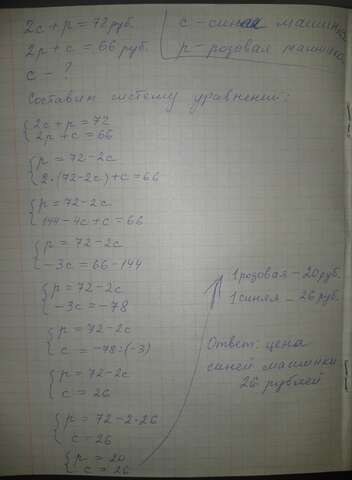 2с + р = 72 руб.
2р + с = 66 руб.
с - ?
с - синяя машинка
р - розовая машинка
Составим систему уравнений:
{ 2с + р = 72
2р + с = 66
{ р = 72 - 2с
2·(72 - 2с) + с = 66
{ р = 72 - 2с
144 - 4с + с = 66
{ р = 72 - 2с
-3с = 66 - 144
{ р = 72 - 2с
-3с = -78
{ р = 72 - 2с
с = -78 : (-3)
{ р = 72 - 2с
с = 26
{ р = 72 - 2·26
с = 26
{ р = 20
с = 26
1 розовая - 20 руб.
1 синяя - 26 руб.
Ответ: цена
синей машинки
26 рублей